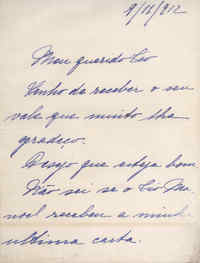 Meu querido Tio
Venho de receber o seu
vale que muito lhe
agradeço.
Desejo que esteja bom
Não sei se o Tio Ma-
noel recebeu a minha
ultima carta.